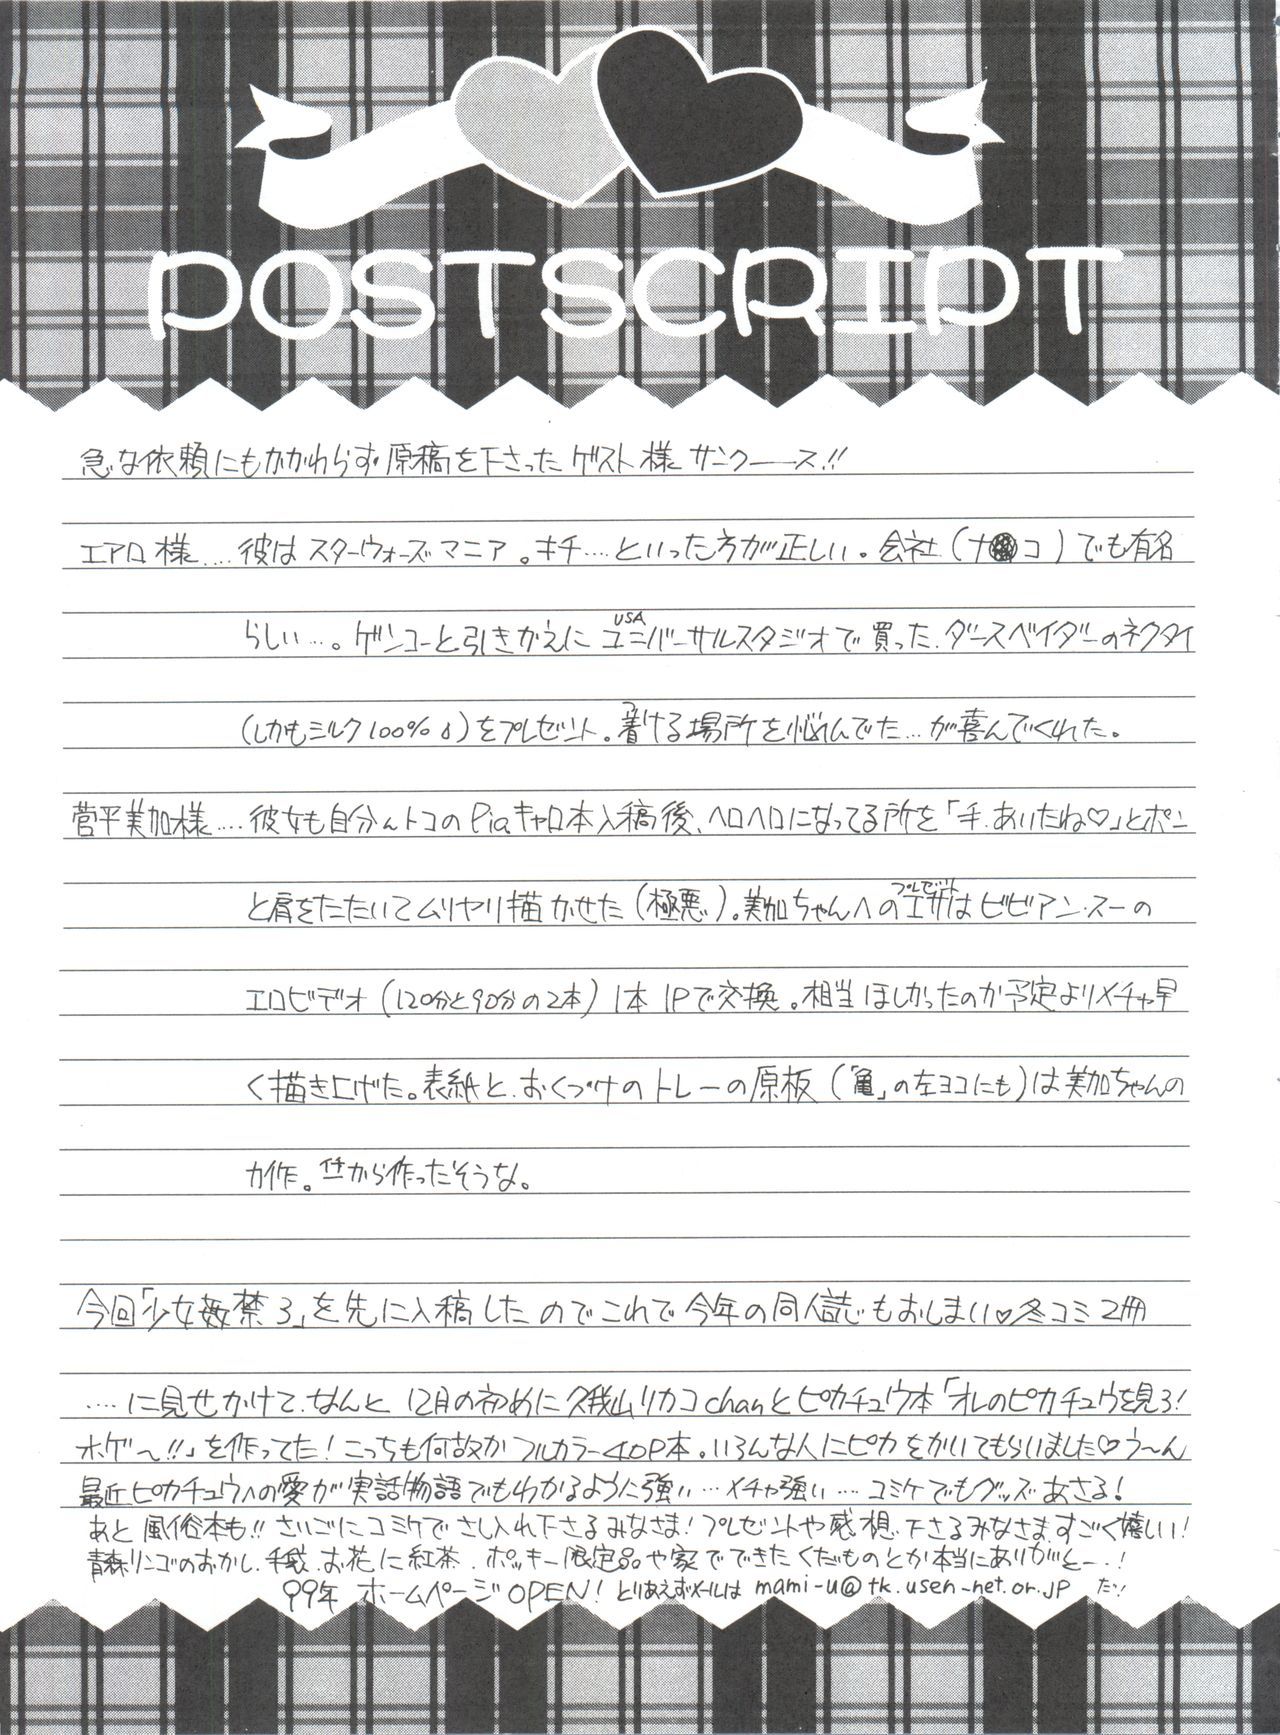 POSTSCRIPT
急な依頼にもかかわらず原稿を下さったゲスト様サンクーース!!
エアロ様....彼はスターウォーズマニア。キチ....といった方が正しい。会社(ナ●コ)でも有名
らしい...。ゲンコーと引きかえにユニバーサルスタジオで買った.ダースベイダーのネクタイ
USA
(しかもシルク100%♪)をプレゼント。着ける場所を悩んでた...が喜んでくれた。
菅平美加様....彼女も自分んトコのPiaキャロ本入稿後、ヘロヘロになってる所を「手.あいたね♡」とポン
と肩をたたいてムリヤリ描かせた(極悪)。美加ちゃんへのエサはビビアン・スーの
プレゼント
エロビデオ(120分と90分の2本)1本1Pで交換。相当ほしかったのか予定よりメチャ早
く描き上げた。表紙と.おくづけのトレーの原板(「亀」の左ヨコにも)は美加ちゃんの
力作。イチから作ったそうな。
今回「少女姦禁3」を先に入稿したのでこれで今年の同人誌もおしまい♡冬コミ2冊
....に見せかけて.なんと12月の初めに久我山リカコchanとピカチュウ本「オレのピカチュウを見ろ!
ホゲ〜!!」を作ってた!こっちも何故かフルカラー40P本。いろんな人にピカをかいてもらいました♡う〜ん
最近ピカチュウへの愛が実話物語でもわかるように強い...メチャ強い...コミケでもグッズあさる!
あと風俗本も!!さいごにコミケでさし入れ下さるみなさま!プレゼントや感想.下さるみなさますごく嬉しい!
青森リンゴのおかし.手袋.お花に紅茶.ポッキー限定品や家でできたくだものとか本当にありがとー.!
99年 ホームページOPEN!とりあえずメールは mami-u@tk.usen-net.or.jp だッ!